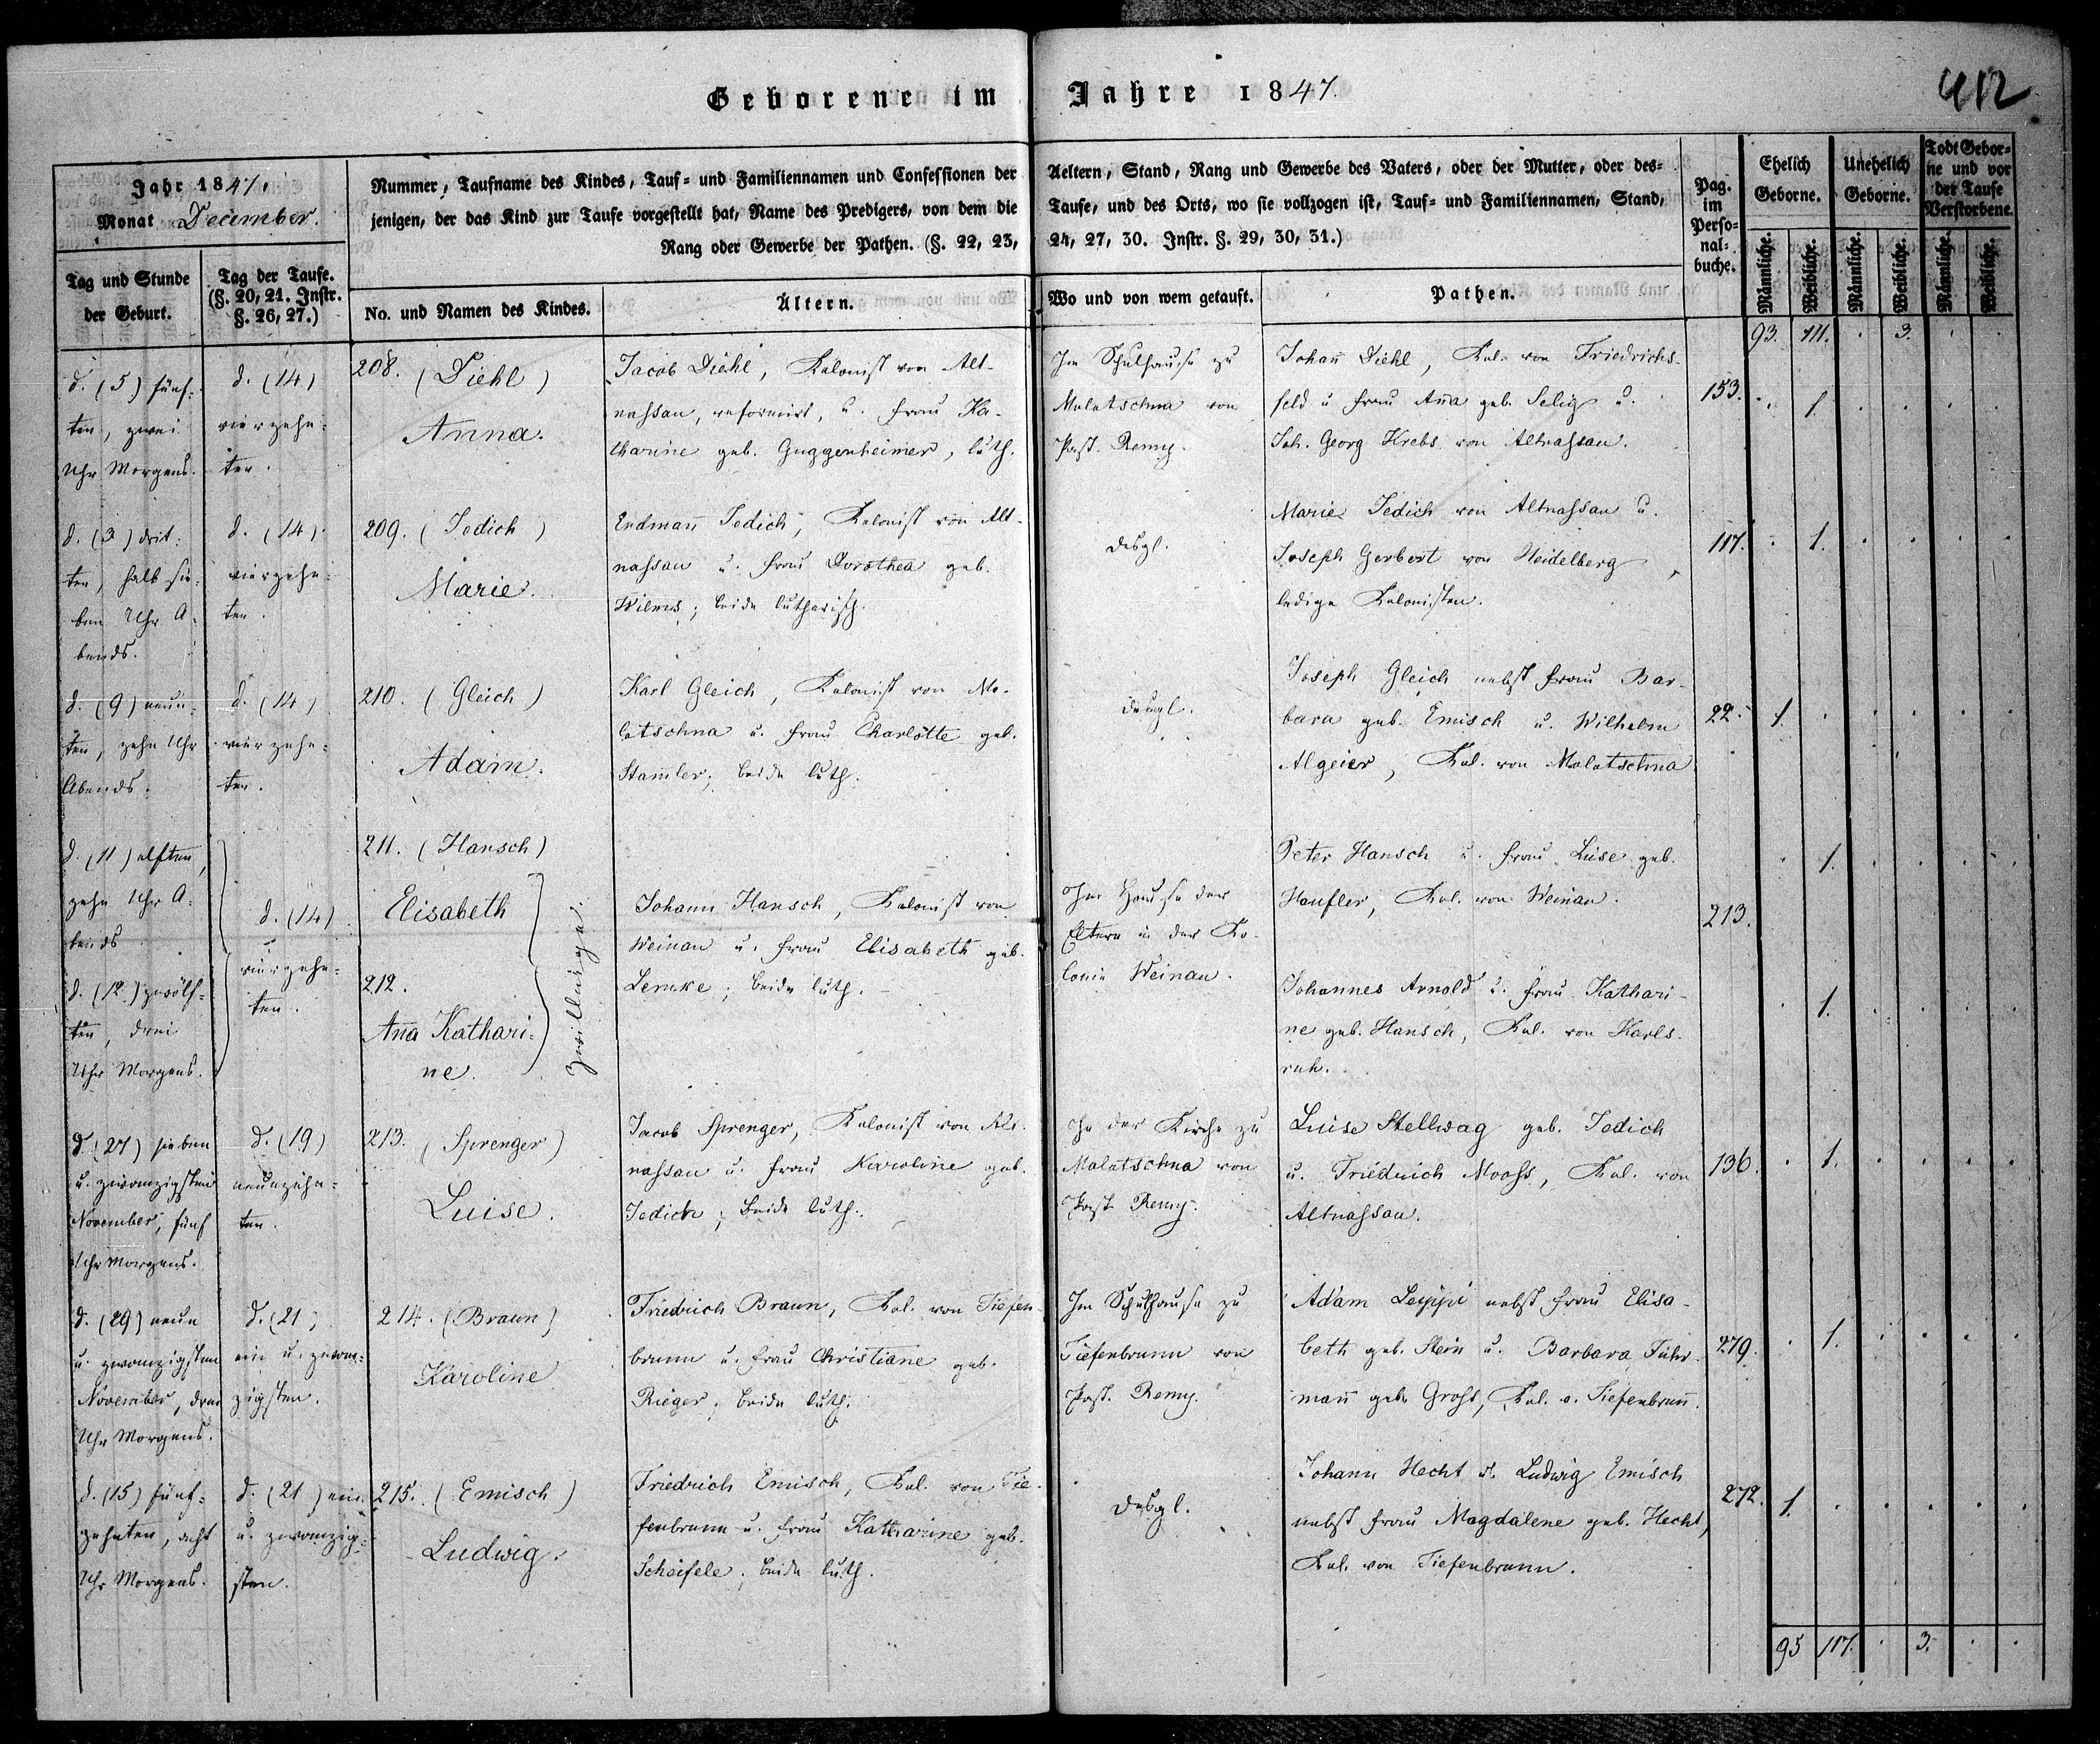 Geborene im Jahre 1847.
412
Jahr 1847.
Monat December.
Nummer, Taufname des Kindes, Tauf- und Familiennamen und Confessionen der Aeltern, Stand, Rang und Gewerbe des Vaters, oder der Mutter, oder des-
jenigen, der das Kind zur Taufe vorgestellt hat, Name des Predigers, von dem die Taufe, und des Orts, wo sie vollzogen ist, Tauf- und Familiennamen, Stand,
Rang oder Gewerbe der Pathen. (§. 22, 23, 24, 27, 30. Instr. §. 29, 30, 31.)
Pag.
im
Perso-
nal-
buche.
Ehelich
Geborne.
Unehelich
Geborne.
Todt Gebor-
ne und vor
der Taufe
Verstorbene.
Tag und Stunde
der Geburt.
Tag der Taufe.
(§. 20, 21. Instr.
§. 26, 27.)
No. und Namen des Kindes.
Ältern.
Wo und von wem getauft.
Pathen.
Männliche.
Weibliche.
Männliche.
Weibliche.
Männliche.
Weibliche.
93. 111. . 3. . .
d. (5) fünf-
ten, zwei
Uhr Morgens.
d. (14)
vierzehn-
ten.
208. (Diehl)
Anna.
Jacob Diehl, Kolonist von Alt-
nassau, reformirt, u. Frau Ka-
tharine geb. Guggenheimer, luth.
Im Schulhause zu
Molotschna von
Past. Remy.
Johan̅ Diehl, Kol. von Friedrichs-
feld u. Frau An̅a geb. Selig u.
Joh. Georg Krebs von Altnassau.
153. . 1. . . . .
d. (3) drit-
ten, halb sie-
ben Uhr A-
bends.
d. (14)
vierzehn-
ten.
209. (Jedich)
Marie.
Erdman̅ Jedich, Kolonist von Alt-
nassau u. Frau Dorothea geb.
Wilms; beide lutherisch.
desgl.
Marie Jedich von Altnassau u.
Joseph Gerbert von Heidelberg,
ledige Kolonisten.
117. . 1. . . . .
d. (9) neun-
ten, zehn Uhr
Abends.
d. (14)
vierzehn-
ten.
210. (Gleich)
Adam.
Karl Gleich, Kolonist von Mo-
lotschna u. Frau Charlotte geb.
Stam̅ler; beide luth.
desgl.
Joseph Gleich nebst Frau Bar-
bara geb. Emisch u. Wilhelm
Algeier, Kol. von Molotschna.
22. 1. . . . . .
d. (11) elften,
zehn Uhr A-
bends
d. (12) zwölf-
ten, drei
Uhr Morgens.
d. (14)
vierzehn-
ten.
211. (Hansch)
Elisabeth
212.
An̅a Kathari-
ne.
Zwillinge.
Johann Hansch, Kolonist von
Weinau u. Frau Elisabeth geb.
Lemke; beide luth.
Im Hause der
Eltern in der Ko-
lonie Weinau.
Peter Hansch u. Frau Luise geb.
Haufler, Kol. von Weinau.
Johannes Arnold u. Frau Kathari-
ne geb. Hansch, Kol. von Karls-
ruh.
213.
. 1. . . . .
. 1. . . . .
d. (27) sieben
u. zwanzigsten
November, fünf
Uhr Morgens.
d. (19)
neunzehn-
ten.
213. (Sprenger)
Luise.
Jacob Sprenger, Kolonist von Alt-
nassau u. Frau Karoline geb.
Jedich; beide luth.
In der Kirche zu
Molotschna von
Past. Remy.
Luise Stellwag geb. Jedich
u. Friedrich Mooss, Kol. von
Altnassau.
136. . 1. . . . .
d. (29) neun
u. zwanzigsten
November, drei
Uhr Morgens.
d. (21)
ein u. zwan-
zigsten.
214. (Braun)
Karoline
Friedrich Braun, Kol. von Tiefen-
brunn u. Frau Christiane geb.
Rieger; beide luth.
Im Schulhause zu
Tiefenbrunn von
Past. Remy.
Adam Leyppi nebst Frau Elisa-
beth geb. Stein u. Barbara Fuhr-
man̅ geb. Gross, Kol. v. Tiefenbrun̅.
279. . 1. . . . .
d. (15) fünf-
zehnten, acht
Uhr Morgens.
d. (21) ein
u. zwanzig-
sten.
215. (Emisch)
Ludwig.
Friedrich Emisch, Kol. von Tie-
fenbrunn u. Frau Katharine geb.
Scheifele; beide luth.
desgl.
Johann Hecht u. Ludwig Emisch
nebst Frau Magdalene geb. Hecht,
Kol. von Tiefenbrunn.
272. 1. . . . . .
95 117. . 3. . .